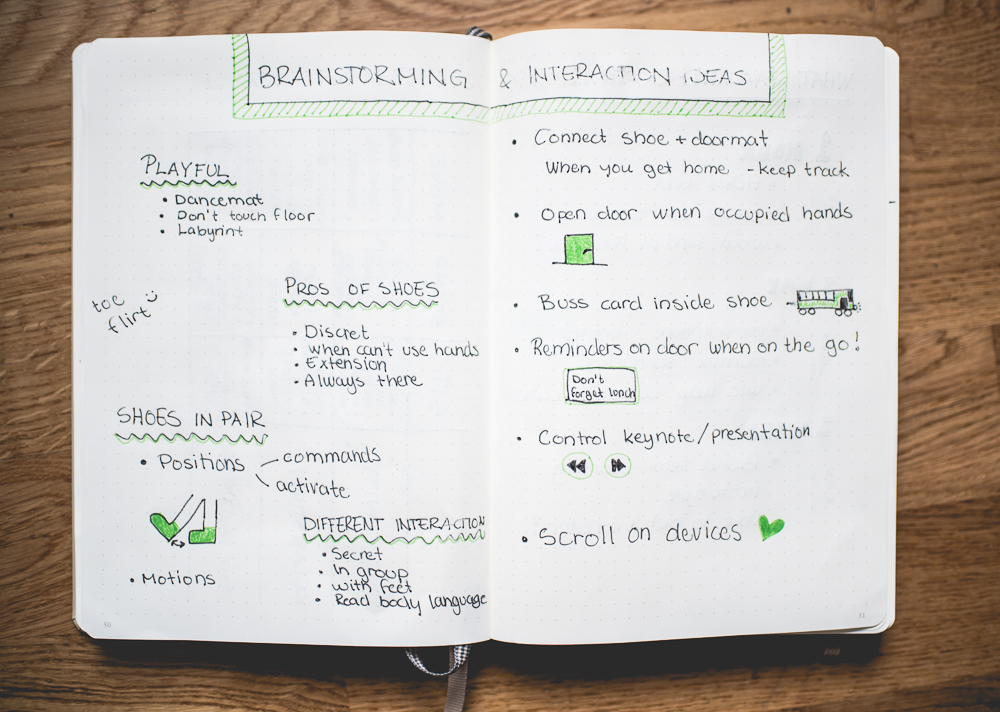 BRAINSTORMING & INTERACTION IDEAS
PLAYFUL
• Dancemat
• Don't touch floor
• Labyrint
toe
flirt
PROS OF SHOES
• Discret
• when can't use hands
• Extension
• Always there
SHOES IN PAIR
• Positions
commands
activate
• Motions
DIFFERENT INTERACTION
• Secret
• In group
• with feet
• Read body language
30
• Connect shoe + doormat
When you get home - keep track
• Open door when occupied hands
• Buss card inside shoe
• Reminders on door when on the go!
Don't
forget lunch
• Control keynote/presentation
• Scroll on devices
31